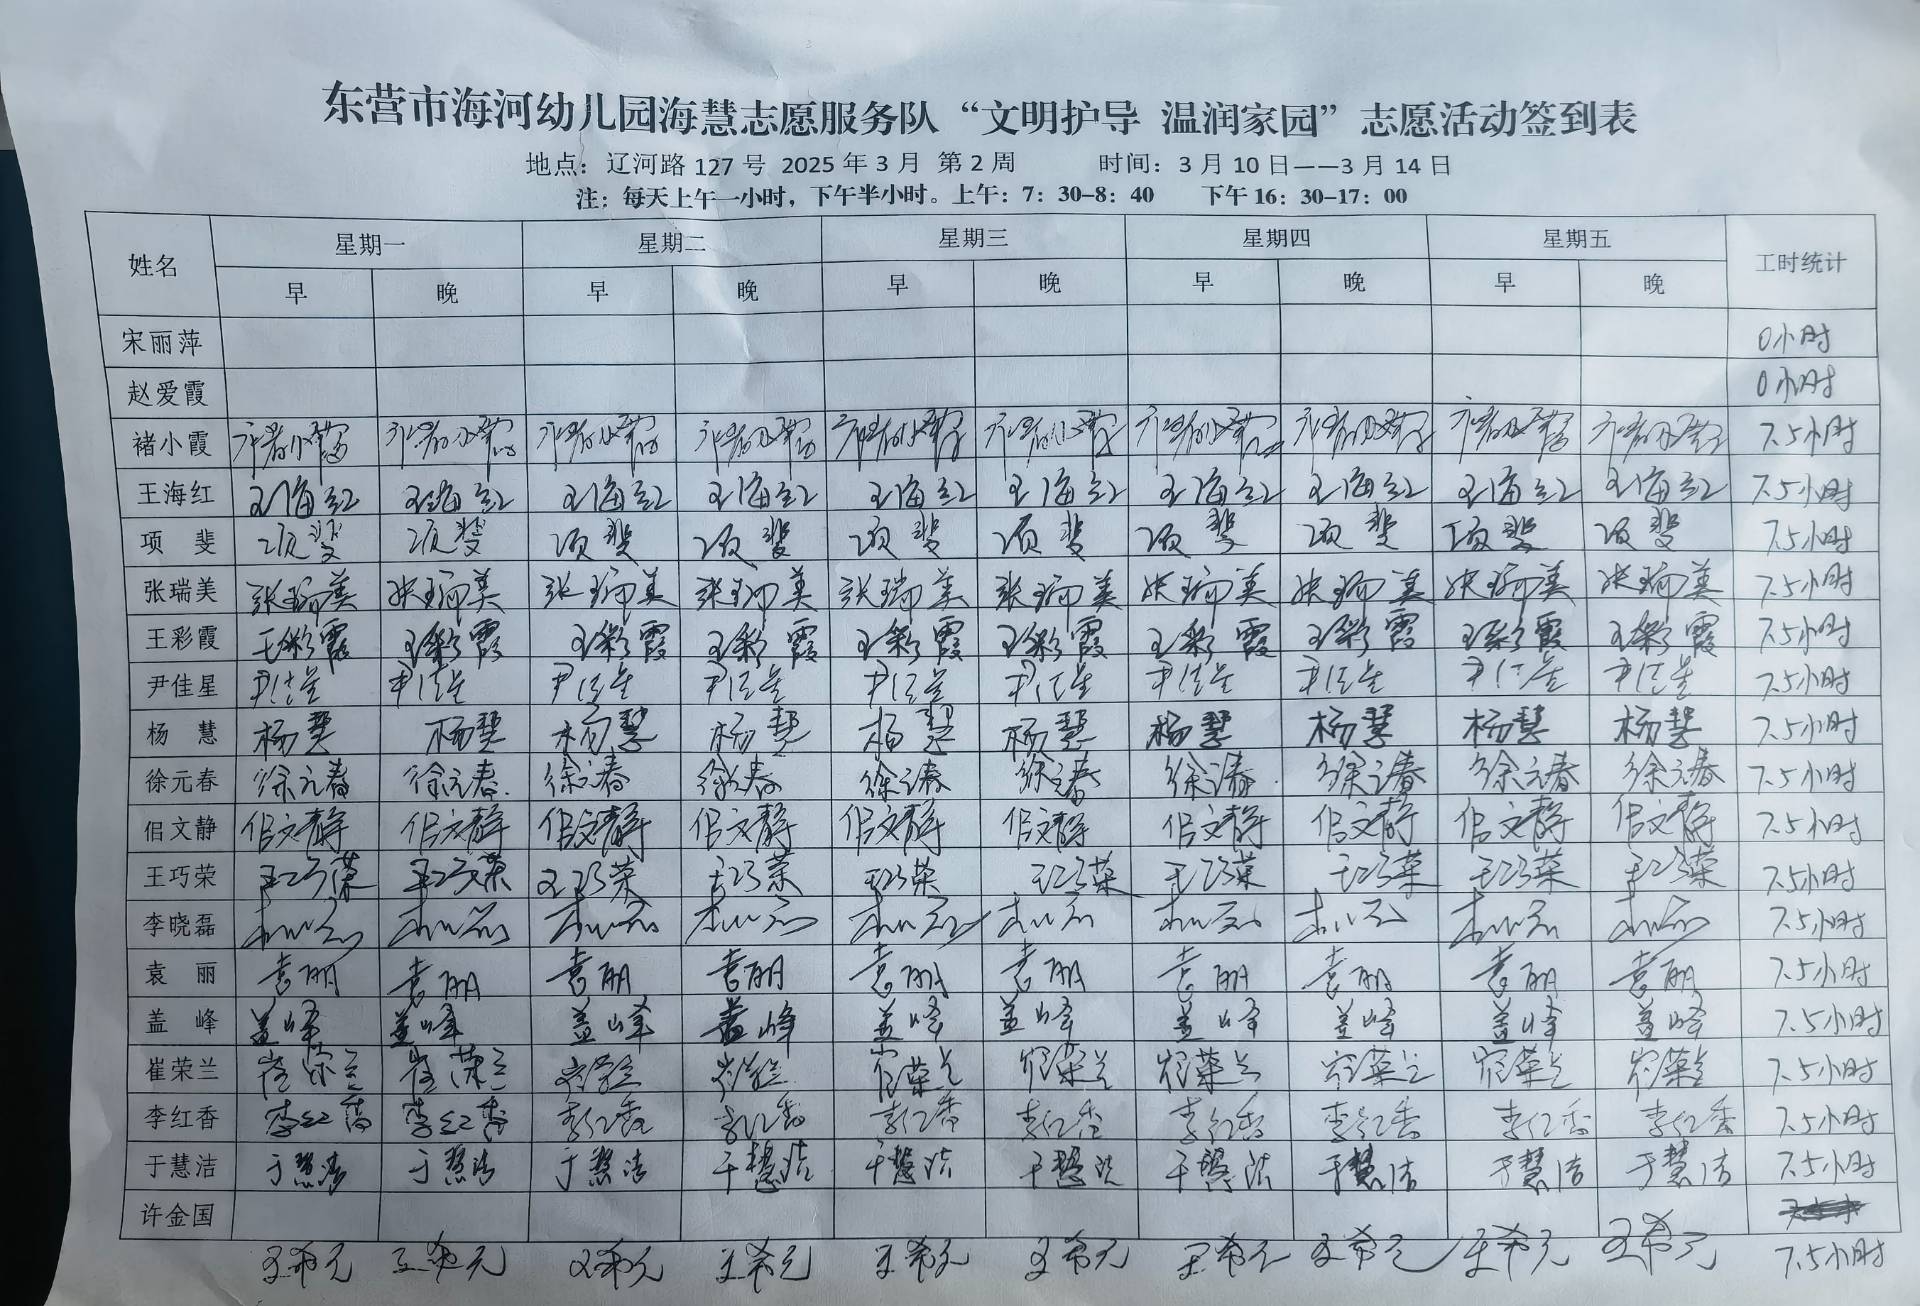 东营市海河幼儿园海慧志愿服务队“文明护导 温润家园”志愿活动签到表
地点：辽河路 127 号 2025 年 3 月 第 2 周 时间：3 月 10 日——3 月 14 日
注：每天上午一小时，下午半小时。上午：7：30-8：40 下午 16：30-17：00
姓名 星期一 星期二 星期三 星期四 星期五 工时统计
早 晚 早 晚 早 晚 早 晚 早 晚
宋丽萍 0小时
赵爱霞 0小时
褚小霞 褚小霞 褚小霞 褚小霞 褚小霞 褚小霞 褚小霞 褚小霞 褚小霞 褚小霞 褚小霞 7.5小时
王海红 王海红 王海红 王海红 王海红 王海红 王海红 王海红 王海红 王海红 王海红 7.5小时
项 斐 项斐 项斐 项斐 项斐 项斐 项斐 项斐 项斐 项斐 项斐 7.5小时
张瑞美 张瑞美 张瑞美 张瑞美 张瑞美 张瑞美 张瑞美 张瑞美 张瑞美 张瑞美 张瑞美 7.5小时
王彩霞 王彩霞 王彩霞 王彩霞 王彩霞 王彩霞 王彩霞 王彩霞 王彩霞 王彩霞 王彩霞 7.5小时
尹佳星 尹佳星 尹佳星 尹佳星 尹佳星 尹佳星 尹佳星 尹佳星 尹佳星 尹佳星 尹佳星 7.5小时
杨 慧 杨慧 杨慧 杨慧 杨慧 杨慧 杨慧 杨慧 杨慧 杨慧 杨慧 7.5小时
徐元春 徐元春 徐元春 徐元春 徐元春 徐元春 徐元春 徐元春 徐元春 徐元春 徐元春 7.5小时
佀文静 佀文静 佀文静 佀文静 佀文静 佀文静 佀文静 佀文静 佀文静 佀文静 佀文静 7.5小时
王巧荣 王巧荣 王巧荣 王巧荣 王巧荣 王巧荣 王巧荣 王巧荣 王巧荣 王巧荣 王巧荣 7.5小时
李晓磊 李晓磊 李晓磊 李晓磊 李晓磊 李晓磊 李晓磊 李晓磊 李晓磊 李晓磊 李晓磊 7.5小时
袁 丽 袁丽 袁丽 袁丽 袁丽 袁丽 袁丽 袁丽 袁丽 袁丽 袁丽 7.5小时
盖 峰 盖峰 盖峰 盖峰 盖峰 盖峰 盖峰 盖峰 盖峰 盖峰 盖峰 7.5小时
崔荣兰 崔荣兰 崔荣兰 崔荣兰 崔荣兰 崔荣兰 崔荣兰 崔荣兰 崔荣兰 崔荣兰 崔荣兰 7.5小时
李红香 李红香 李红香 李红香 李红香 李红香 李红香 李红香 李红香 李红香 李红香 7.5小时
于慧洁 于慧洁 于慧洁 于慧洁 于慧洁 于慧洁 于慧洁 于慧洁 于慧洁 于慧洁 于慧洁 7.5小时
许金国
王希元 王希元 王希元 王希元 王希元 王希元 王希元 王希元 王希元 王希元 7.5小时